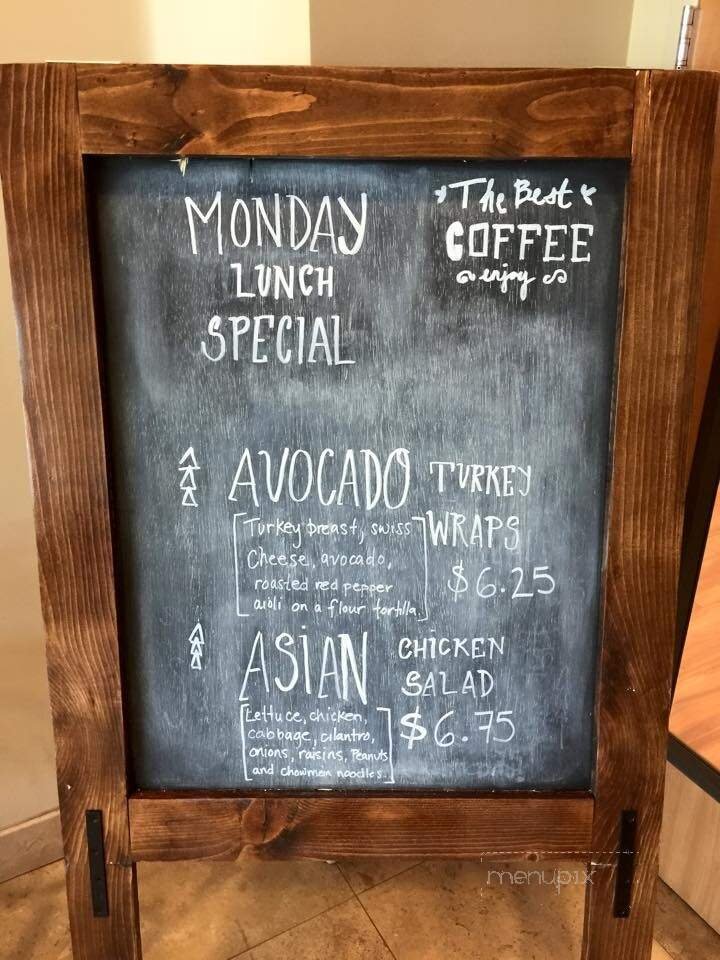 MONDAY
LUNCH
SPECIAL
The Best
COFFEE
enjoy
AVOCADO TURKEY
WRAPS
$6.25
Turkey breast, swiss
Cheese, avocado,
roasted red pepper
aioli on a flour tortilla.
ASIAN CHICKEN
SALAD
$6.75
Lettuce, chicken,
cabbage, cilantro,
onions, raisins, Peanuts
and chowmen noodles.
menupix